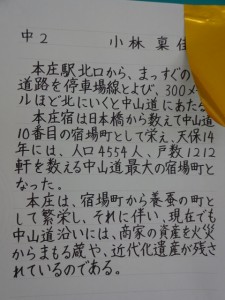 中2
小林 稟佳
本庄駅北口から、まっすぐの
道路を停車場線とよび、300メー
ルほど北にいくと中山道にあたる
本庄宿は日本橋から数えて中山道
10番目の宿場町として栄え、天保14
年には、人口4554人、戸数1212
軒を数える中山道最大の宿場町と
なった。
本庄は、宿場町から養蚕の町と
して繁栄し、それに伴い、現在でも
中山道沿いには、商家の資産を火災
からまもる蔵や、近代化遺産が残さ
れているのである。